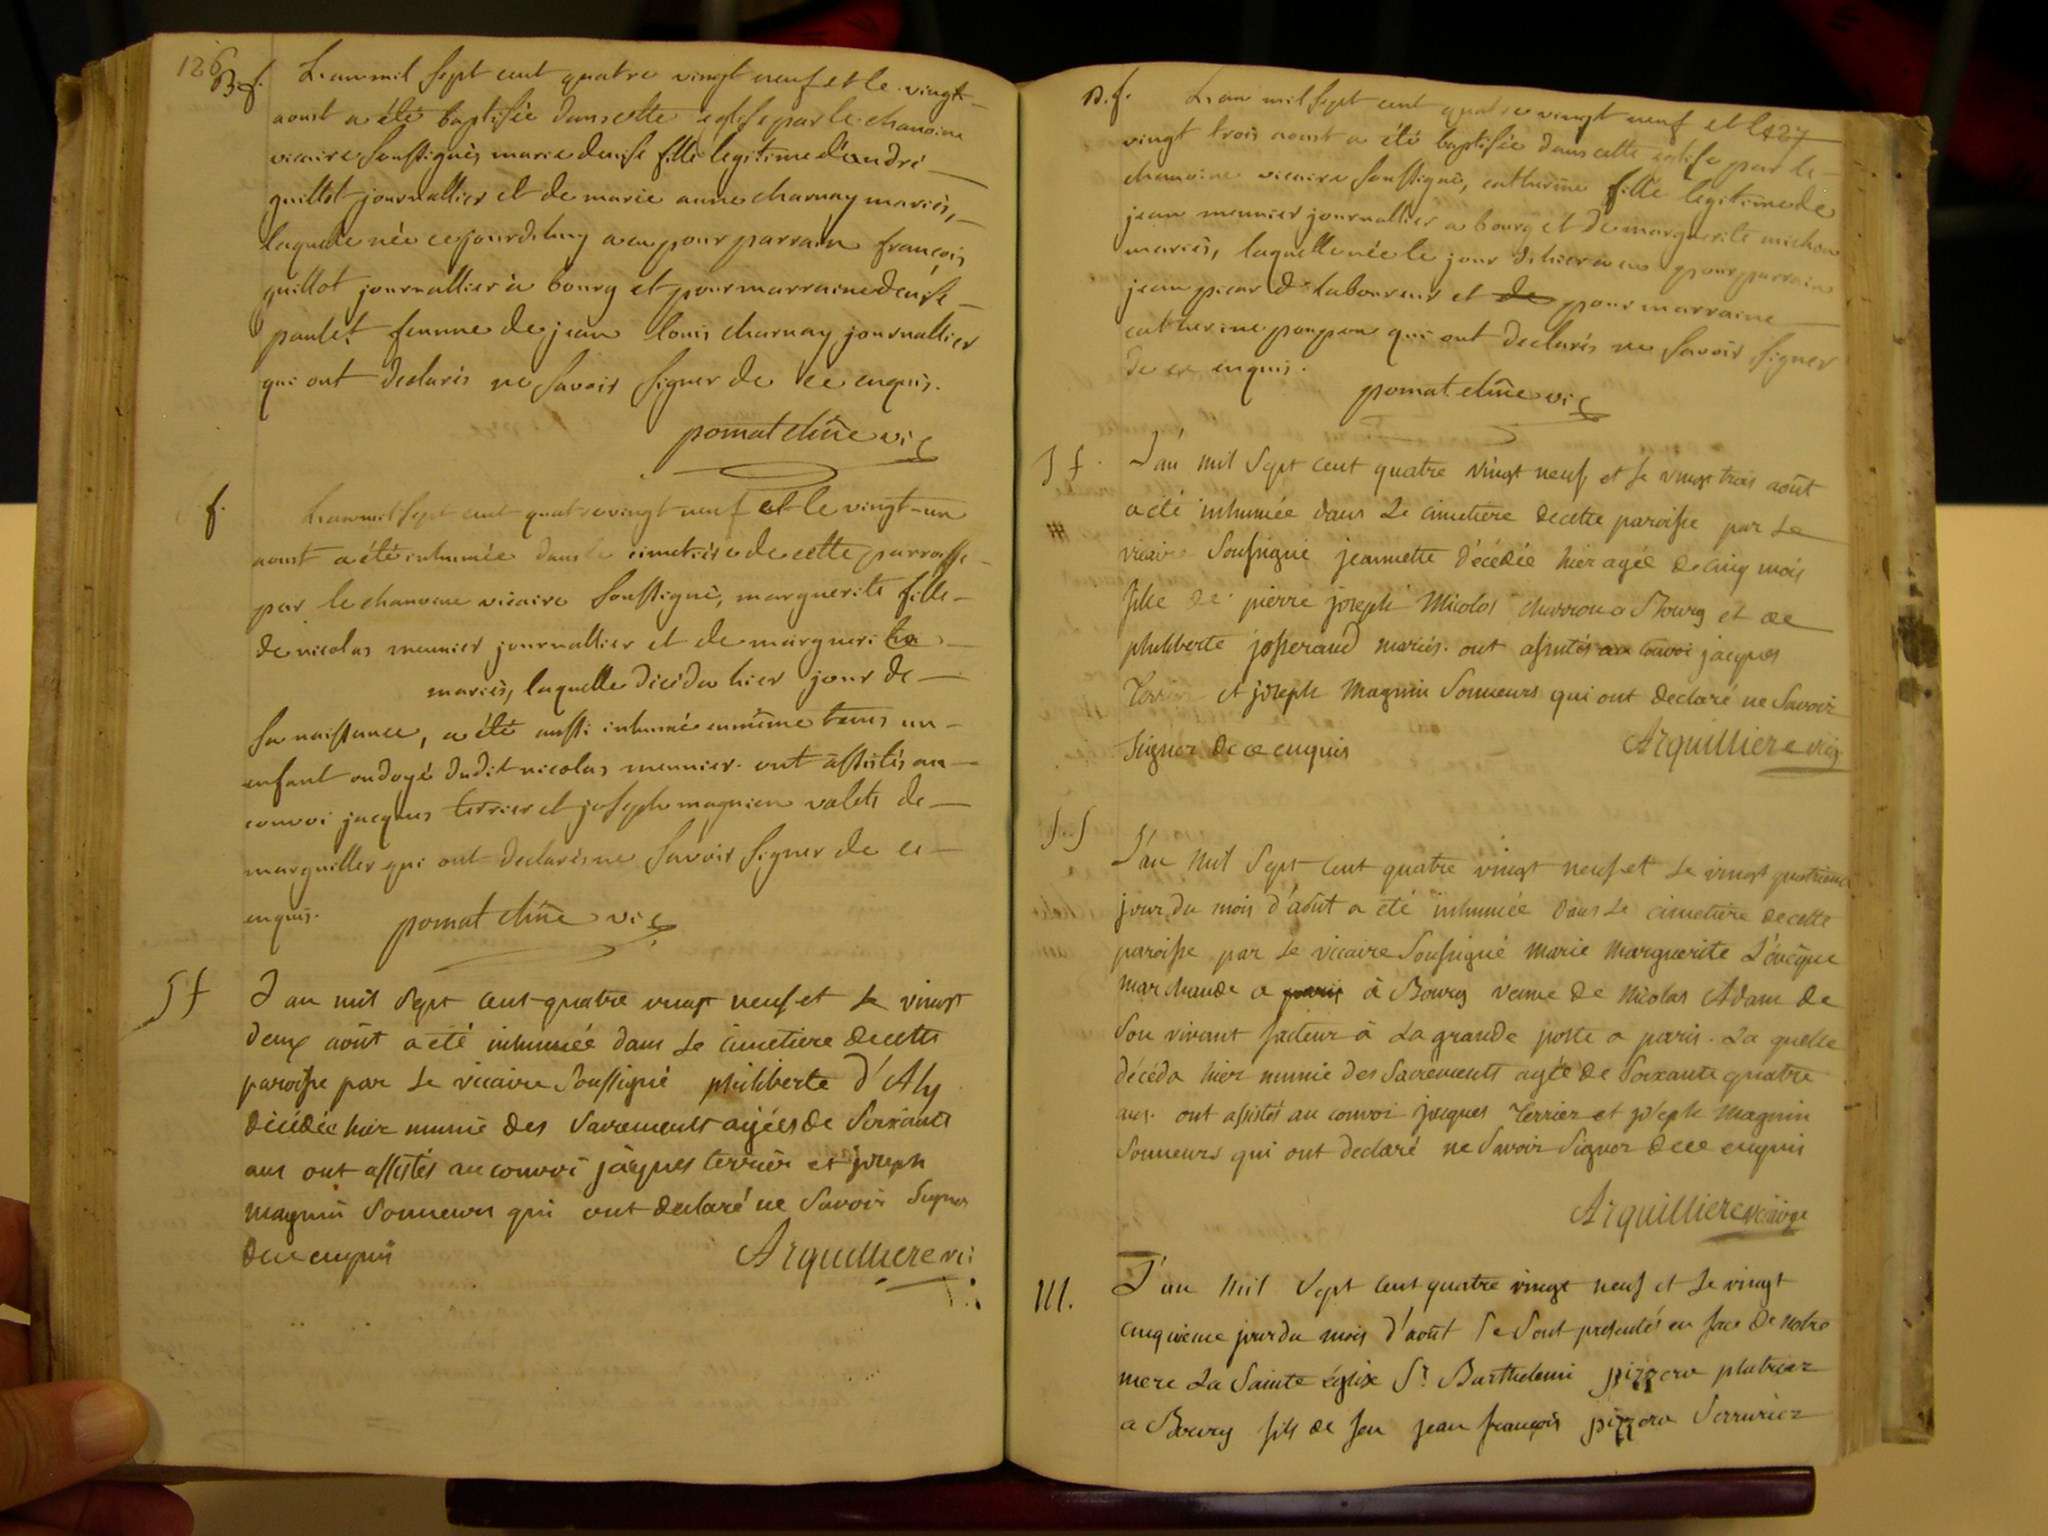 126
B. f. L'an mil sept cent quatre vingt neuf et le vingt
aoust a été baptisée dans cette eglise par le chanoine
vicaire soussignés marie denise fille legitime d'andré
guillot journallier et de marie anne charnay mariés,
laquelle née cejourdhuy a eu pour parrain françois
guillot journallier à bourg et pour marraine denise
paulet femme de jean louis charnay journallier
qui ont declarés ne savoir signer de ce enquis.
pomat chñe vic
f. L'an mil sept cent quatre vingt neuf et le vingt-un
aoust a été inhumée dans le cimetière de cette parroisse
par le chanoine vicaire soussigné, marguerite fille
de nicolas meunier journallier et de marguerite
mariés, laquelle décéda hier jour de
sa naissance, a été aussi inhumé en même tems un
enfant ondoyé dudit nicolas meunier. ont assistés au
convoi jacques terrier et joseph magnien valets de
marguiller qui ont declarés ne savoir signer de ce
enquis. pomat chñe vic
Sf L'an mil sept cent quatre vingt neuf et le vingt
deux août a été inhumée dans le cimetiere de cette
paroisse par le vicaire soussigné philiberte d'Aly
décédée hier munie des sacrements agées de soixante
ans ont assistés au convoi jacques terrier et joseph
magnin sonneurs qui ont declaré ne savoir signer
de ce enquis Arquilliere vic
127
B. f. L'an mil sept cent quatre vingt neuf et le
vingt trois aoust a été baptisée dans cette eglise par le
chanoine vicaire soussigné, catherine fille legitime de
jean meunier journallier a bourg et de marguerite michon
mariés, laquelle née le jour d'hier a eu pour parrain
jean picard laboureur et de pour marraine
catherine ponpon qui ont declarés ne savoir signer
de ce enquis.
pomat chñe vic
Sf. L'an mil sept cent quatre vingt neuf et le vingt trois août
a été inhumée dans le cimetière de cette paroisse par le
vicaire soussigné jeannette décédée hier agée de cinq mois
fille de pierre joseph Nicolas charron a Bourg et de
philiberte josserand mariés. ont assistés au convoi jacques
Terrier et joseph Magnin sonneurs qui ont declaré ne savoir
signer de ce enquis Arquilliere vic
S. f L'an mil sept cent quatre vingt neuf et le vingt quatrieme
jour du mois d'août a été inhumée dans le cimetiere de cette
paroisse par le vicaire soussigné Marie Marguerite L'évêque
marchande a paris à Bourg veuve de Nicolas Adam de
son vivant facteur à la grande poste a paris. La quelle
décéda hier munie des sacrements agée de soixante quatre
ans. ont assistés au convoi jacques Terrier et joseph Magnin
sonneurs qui ont declaré ne savoir signer de ce enquis
Arquilliere vicaire
M. L'an mil sept cent quatre vingt neuf et le vingt
cinquieme jour du mois d'août se sont présentés en face de notre
mere la sainte église Sr. Barthelemi pizzera platrier
a Bourg fils de feu jean françois pizzera serrurier